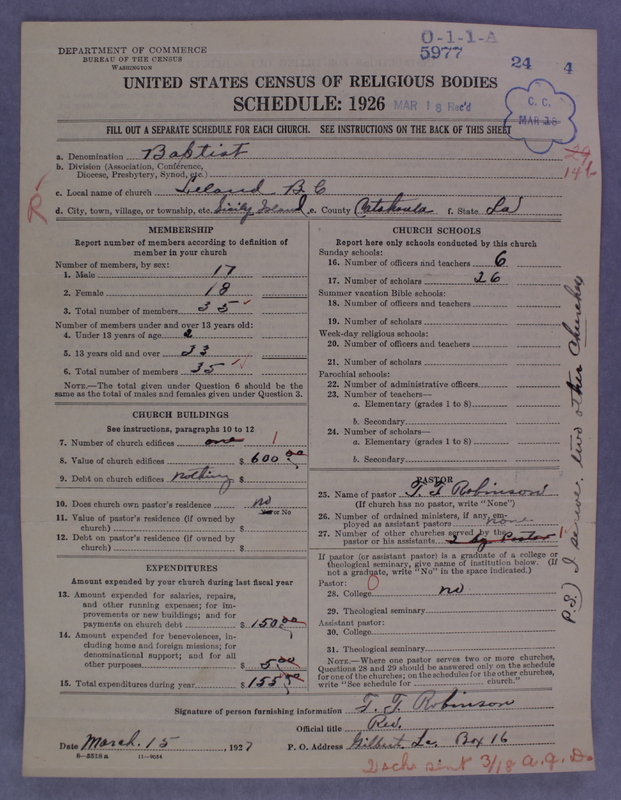 O-1-1-A
5977
24
4
DEPARTMENT OF COMMERCE
BUREAU OF THE CENSUS
WASHINGTON
UNITED STATES CENSUS OF RELIGIOUS BODIES
SCHEDULE: 1926
MAR 18 Rec'd
C. C.
MAR 18
FILL OUT A SEPARATE SCHEDULE FOR EACH CHURCH. SEE INSTRUCTIONS ON THE BACK OF THIS SHEET
a. Denomination Baptist
b. Division (Association, Conference,
Diocese, Presbytery, Synod, etc.)
c. Local name of church Leland B C
d. City, town, village, or township, etc. Sicily Island e. County Catahoula f. State La
R
MEMBERSHIP
Report number of members according to definition of
member in your church
Number of members, by sex:
1. Male 17
2. Female 18
3. Total number of members 35
Number of members under and over 13 years old:
4. Under 13 years of age 2
5. 13 years old and over 33
6. Total number of members 35
NOTE.—The total given under Question 6 should be the
same as the total of males and females given under Question 3.
CHURCH BUILDINGS
See instructions, paragraphs 10 to 12
7. Number of church edifices one 1
8. Value of church edifices $ 600 00
9. Debt on church edifices nothing $
10. Does church own pastor's residence no
Yes or No
11. Value of pastor's residence (if owned by
church) $
12. Debt on pastor's residence (if owned by
church) $
EXPENDITURES
Amount expended by your church during last fiscal year
13. Amount expended for salaries, repairs,
and other running expenses; for im-
provements or new buildings; and for
payments on church debt $ 150 00
14. Amount expended for benevolences, in-
cluding home and foreign missions; for
denominational support; and for all
other purposes $ 5 00
15. Total expenditures during year $ 155 00
CHURCH SCHOOLS
Report here only schools conducted by this church
Sunday schools:
16. Number of officers and teachers 6
17. Number of scholars 26
Summer vacation Bible schools:
18. Number of officers and teachers
19. Number of scholars
Week-day religious schools:
20. Number of officers and teachers
21. Number of scholars
Parochial schools:
22. Number of administrative officers
23. Number of teachers—
a. Elementary (grades 1 to 8)
b. Secondary
24. Number of scholars—
a. Elementary (grades 1 to 8)
b. Secondary
PASTOR
25. Name of pastor T. F. Robinson
(If church has no pastor, write "None")
26. Number of ordained ministers, if any, em-
ployed as assistant pastors none
27. Number of other churches served by the
pastor or his assistants 2 by Pastor
If pastor (or assistant pastor) is a graduate of a college or
theological seminary, give name of institution below. (If
not a graduate, write "No" in the space indicated.)
Pastor: 0
28. College no
29. Theological seminary
Assistant pastor:
30. College
31. Theological seminary
NOTE.—Where one pastor serves two or more churches,
Questions 28 and 29 should be answered only on the schedule
for one of the churches; on the schedules for the other churches,
write "See schedule for church."
P.S.) I serve. two other Churches
Signature of person furnishing information T. F. Robinson
Official title Rev.
Date March. 15, 1927 P. O. Address Gilbert, La. Box 16
8—5518a 11—9054
2 sch sent 3/18 a. g. D.